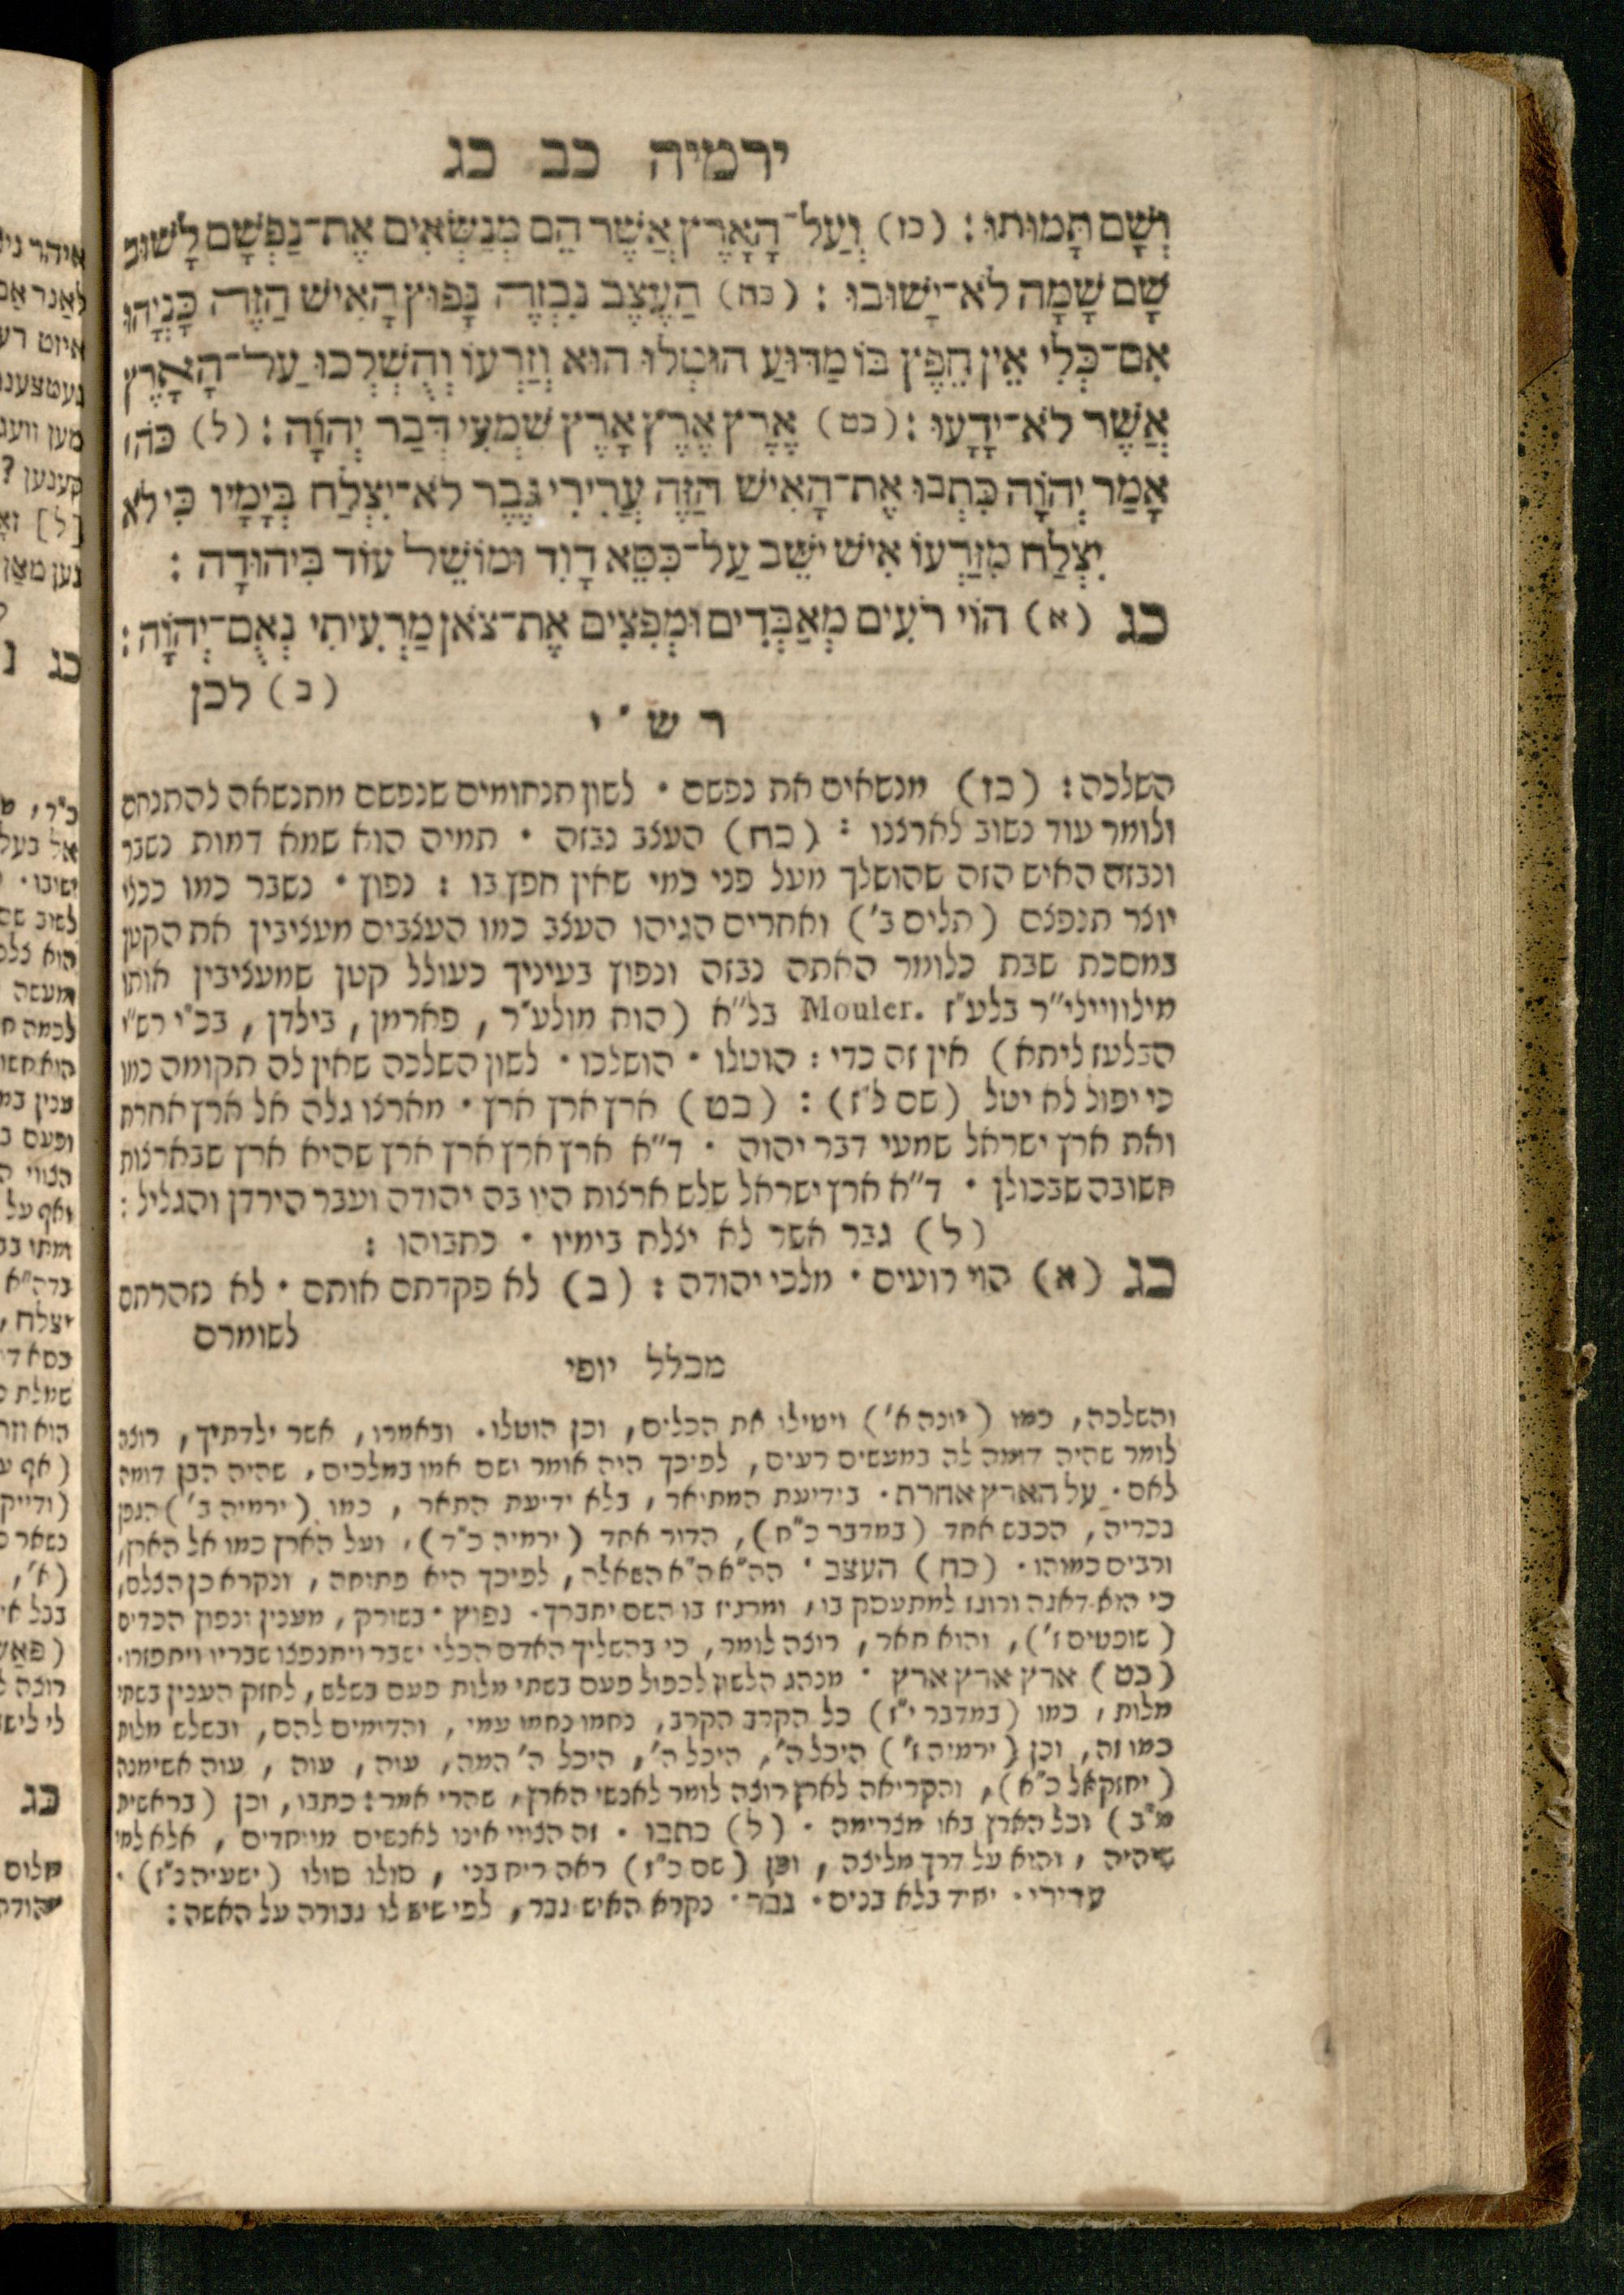 ירמיה כב כג
וְשָׁם תָּמוּתוּ: (כז) וְעַל־הָאָרֶץ אֲשֶׁר הֵם מְנַשְּׂאִים אֶת־נַפְשָׁם לָשׁוּב
שָׁם שָׁמָּה לֹא־יָשׁוּבוּ: (כח) הַעֶצֶב נִבְזֶה נָפוּץ הָאִישׁ הַזֶּה כָּנְיָהוּ
אִם־כְּלִי אֵין חֵפֶץ בּוֹ מַדּוּעַ הוּטְלוּ הוּא וְזַרְעוֹ וְהֻשְׁלְכוּ עַל־הָאָרֶץ
אֲשֶׁר לֹא־יָדָעוּ: (כט) אֶרֶץ אֶרֶץ אָרֶץ שִׁמְעִי דְּבַר יְהוָֹה: (ל) כֹּהוּ
אָמַר יְהוָֹה כִּתְבוּ אֶת־הָאִישׁ הַזֶּה עֲרִירִי גֶּבֶר לֹא־יִצְלַח בְּיָמָיו כִּי לֹא
יִצְלַח מִזַּרְעוֹ אִישׁ יֹשֵׁב עַל־כִּסֵּא דָוִד וּמוֹשֵׁל עוֹד בִּיהוּדָה:
כג (א) הוֹי רֹעִים מְאַבְּדִים וּמְפִצִים אֶת־צֹאן מַרְעִיתִי נְאֻם־יְהוָֹה:
(ב) לכן
רש"י
השלכה: (כז) מנשאים את נפשם · לשון תנחומים שנפשם מתנשאה להתנחם
ולומר עוד נשוב לארצנו: (כח) העצב נבזה · תמיה הוא שמא דמות נשבר
ונבזה האיש הזה שהושלך מעל פני כמי שאין חפץ בו: נפוץ · נשבר כמו ככלי
יוצר תנפצם (תלים ב') ואחרים הגיהו העצב כמו העצבים מעצבין את הקטן
במסכת שבת כלומר האתה נבזה ונפוץ בעיניך כעולל קטן שמעצבין אותו
מילוויילי"ר בלע"ז Mouler. בל"א (הוא מולע"ר, פארמן, בילדן, בכ"י רש"י
הבלעז ליתא) אין זה כדי: הוטלו · הושלכו · לשון השלכה שאין לה תקומה כמו
כי יפול לא יטל (שם ל"ז): (כט) ארץ ארץ ארץ · מארצו גלה אל ארץ אחרת
ואת ארץ ישראל שמעי דבר יהוה · ד"א ארץ ארץ ארץ ארץ שהיא ארץ שבארצות
חשובה שבכולן · ד"א ארץ ישראל שלש ארצות היו בה יהודה ועבר הירדן והגליל:
(ל) גבר אשר לא יצלח בימיו · כתבוהו:
כג (א) הוי רועים · מלכי יהודה: (ב) לא פקדתם אותם · לא מהרתם
לשומרם
מכלל יופי
והשלכה, כמו (יונה א') ויטילו את הכלים, וכן הוטלו. ובאמרו, אשר ילדתיך, רוצה
לומר שהיה דומה לה במעשים רעים, לפיכך היה אומר ושם אמו במלכים, שהיה הבן דומה
לאם. על הארץ אחרת. בידיעת המתואר, בלא ידיעת התאר, כמו (ירמיה ב') הגפן
נכריה, הכבש אחד (במדבר כ"ח), הדוד אחד (ירמיה כ"ד), ועל הארץ כמו אל הארץ,
ורבים כמוהו. (כח) העצב · הה"א ה"א השאלה, לפיכך היא פתוחה, ונקרא כן הצלם,
כי הוא דאגה ורוגז למתעסק בו, ומרגיז בו השם יתברך. נפוץ · בשורק, מענין ונפוץ הכדים
(שופטים ז'), והוא תאר, רוצה לומר, כי בהשליך האדם הכלי ישבר ויתנפצו שבריו ויתפזרו.
(כט) ארץ ארץ ארץ · מנהג הלשון לכפול פעם בשתי מלות פעם בשלש, לחזק הענין בשתי
מלות, כמו (במדבר י"ז) כל הקרב הקרב, נחמו נחמו עמי, והדומים להם, ובשלש מלות
כמו זה, וכן (ירמיה ז') היכל ה', היכל ה', היכל ה' המה, עוה, עוה, עוה אשימנה
(יחזקאל כ"א), והקריאה לארץ רוצה לומר לאנשי הארץ, שהרי אמר: כתבו, וכן (בראשית
מ"ב) וכל הארץ באו מצרימה. (ל) כתבו · זה הצווי אינו לאנשים מיוחדים, אלא למי
שיהיה, והוא על דרך מליצה, וכן (שם כ"ז) ראה ריח בני, סולו סולו (ישעיה נ"ז).
ערירי. יחיד בלא בנים. גבר. נקרא האיש גבר, לפי שיש לו גבורה על האשה: